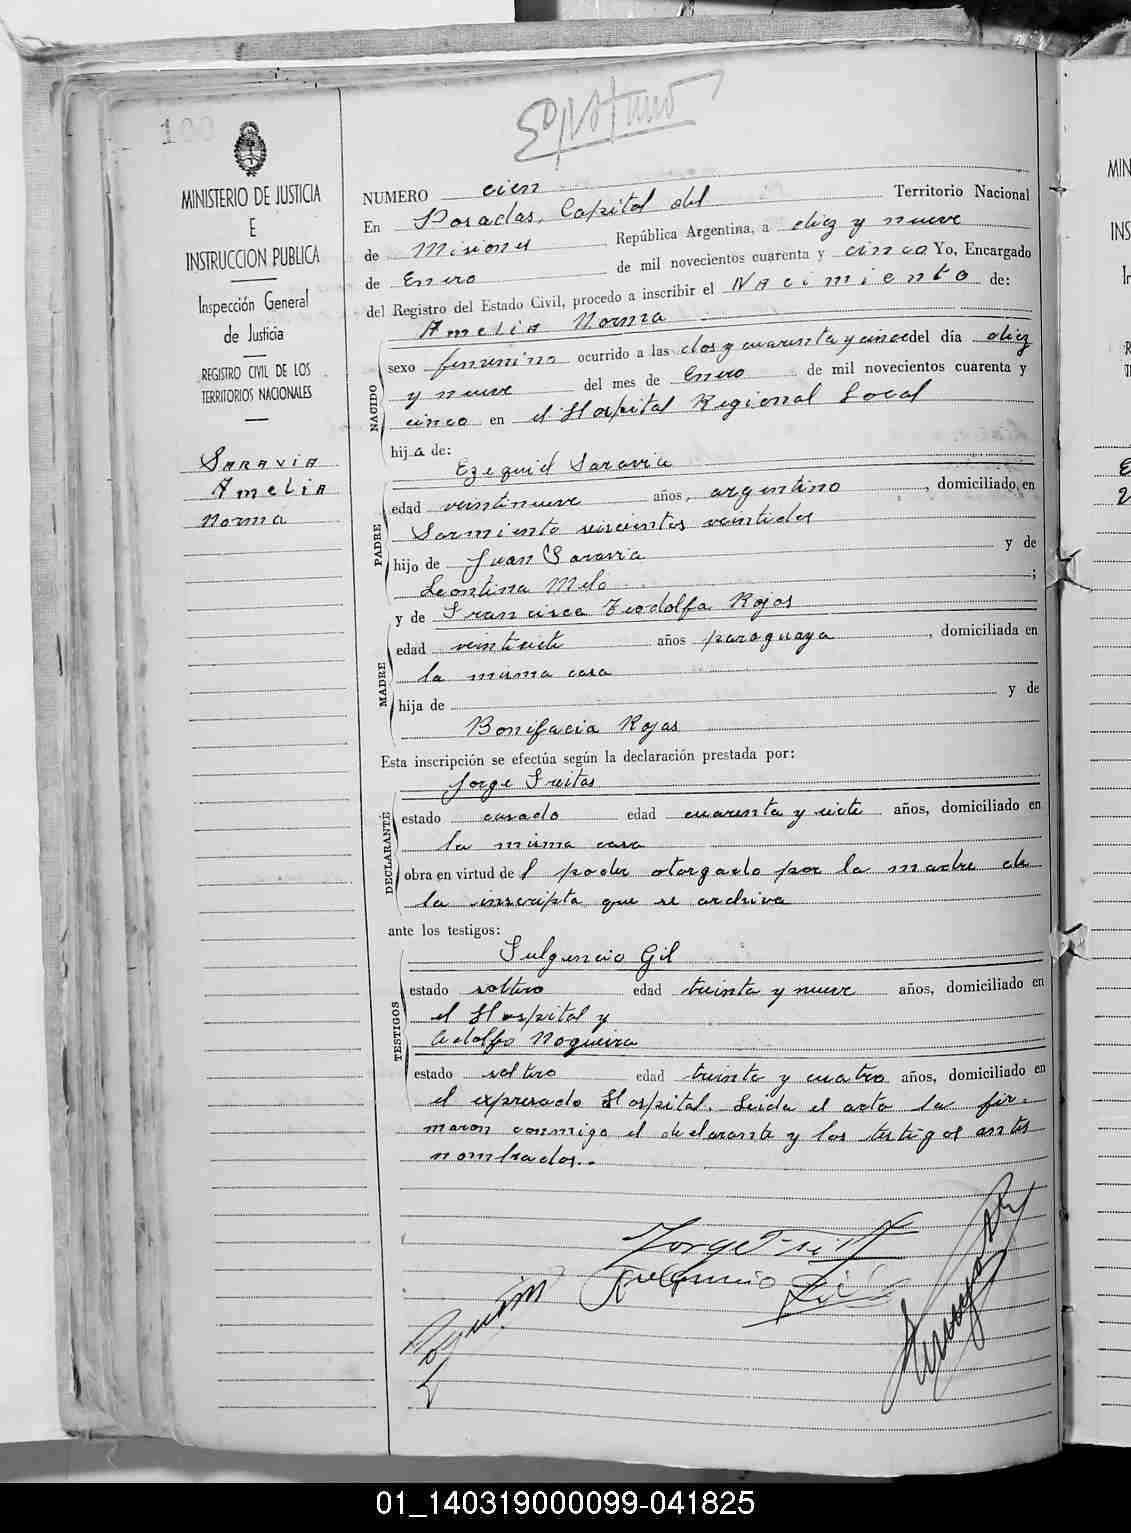 100
MINISTERIO DE JUSTICIA
E
INSTRUCCION PUBLICA
Inspección General
de Justicia
REGISTRO CIVIL DE LOS
TERRITORIOS NACIONALES
Saravia
Amelia
Norma
NUMERO cien
En Posadas, Capital del Territorio Nacional
de Misiones República Argentina, a diez y nueve
de Enero de mil novecientos cuarenta y cinco Yo, Encargado
del Registro del Estado Civil, procedo a inscribir el Nacimiento de:
Amelia Norma
NACIDO
sexo femenino ocurrido a las dos y cuarenta y cinco del día diez
y nueve del mes de Enero de mil novecientos cuarenta y
cinco en el Hospital Regional Local
hija de:
Ezequiel Saravia
PADRE
edad veintinueve años, argentino, domiciliado en
Sarmiento seiscientos veintidos
hijo de Juan Saravia y de
Leontina Melo ;
y de Francisca Teodolfa Rojas
MADRE
edad veintisiete años paraguaya, domiciliada en
la misma casa
hija de y de
Bonifacia Rojas
Esta inscripción se efectúa según la declaración prestada por:
Jorge Freitas
DECLARANTE
estado casado edad cuarenta y siete años, domiciliado en
la misma casa
obra en virtud del poder otorgado por la madre de
la inscripta que se archiva
ante los testigos:
Fulgencio Gil
TESTIGOS
estado soltero edad treinta y nueve años, domiciliado en
el Hospital y
Adolfo Nogueira
estado soltero edad treinta y cuatro años, domiciliado en
el expresado Hospital. Leida el acta la fir-
maron conmigo el declarante y los testigos antes
nombrados..
Jorge Freit
Fulgencio Gil
MIN
INS
01_140319000099-041825